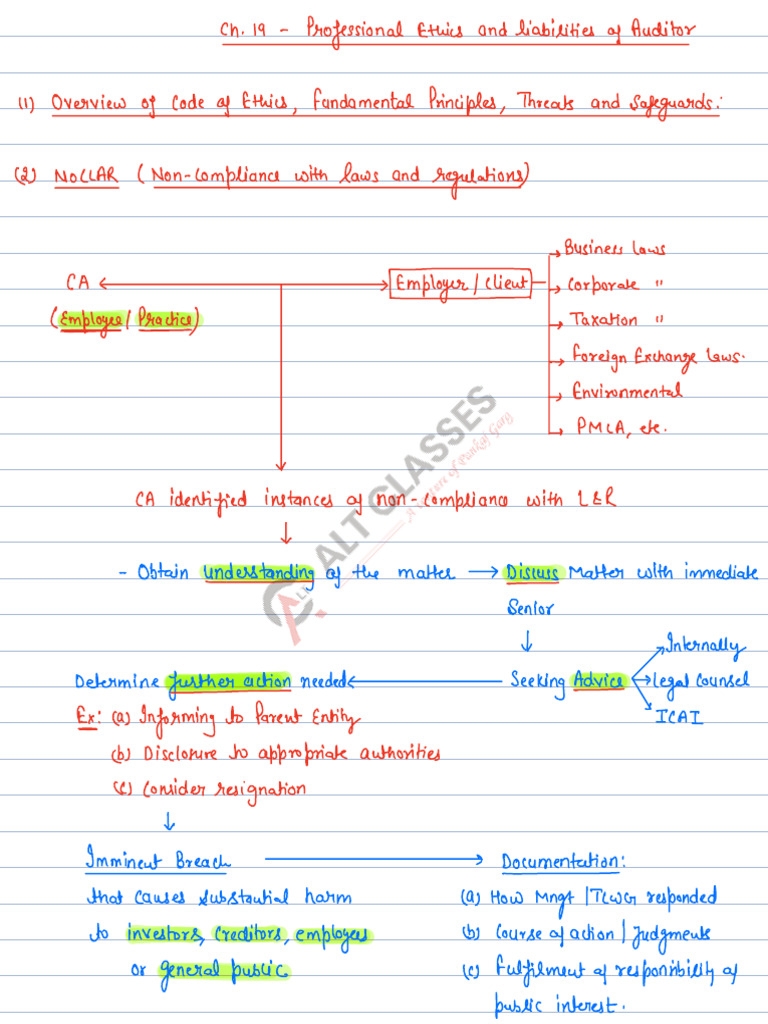 Ch. 19 - Professional Ethics and liabilities of Auditor
(1) Overview of Code of Ethics, Fundamental Principles, Threats and Safeguards:
(2) NOCLAR (Non-compliance with laws and regulations)
Business laws
CA
Employer / Client
Corporate "
(Employee / Practice)
Taxation "
Foreign Exchange Laws.
Environmental
PMLA, etc.
ALT CLASSES
A Venture of Pankaj Garg
CA identified instances of non-compliance with L&R
- Obtain understanding of the matter → Discuss Matter with immediate
Senior
Internally
Determine further action needed ← Seeking Advice → Legal Counsel
Ex: (a) Informing to Parent Entity
ICAI
(b) Disclosure to appropriate authorities
(c) Consider resignation
Imminent Breach → Documentation:
that causes substantial harm
(a) How Mngt | TCWG responded
to investors, creditors, employees
(b) Course of action | Judgments
or general public
(c) Fulfilment of responsibility of
public interest.